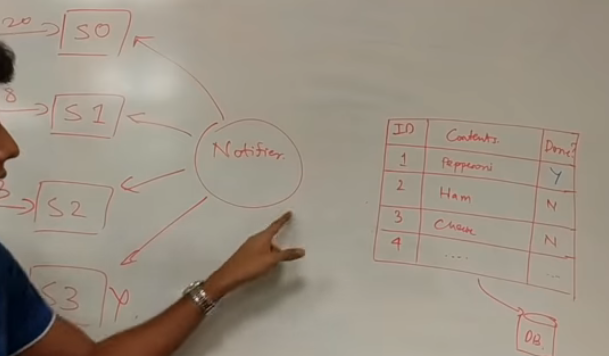 20
S0
8
S1
Notifier
3
S2
S3
ID Contents Done?
1 Pepperoni Y
2 Ham N
3 Cheese N
4 .... ...
DB.